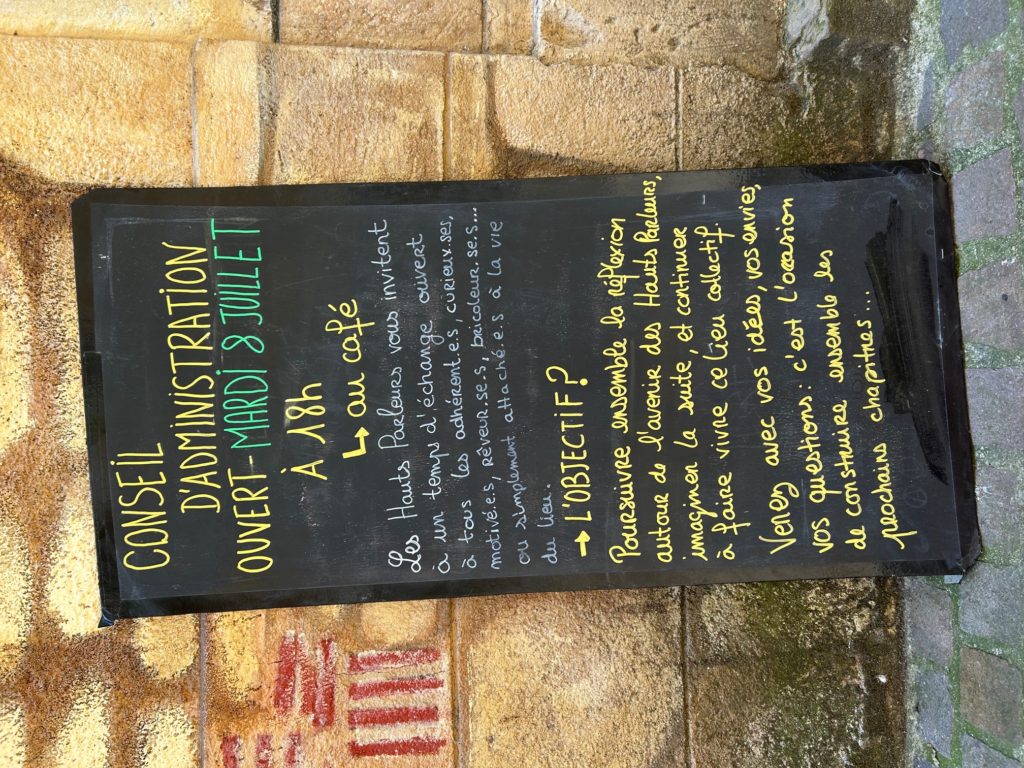 CONSEIL
D'ADMINISTRATION
OUVERT - MARDI 8 JUILLET
À 18h
↳ au café
Les Hauts Parleurs vous invitent
à un temps d'échange ouvert
à tous les adhérent.es, curieux.ses,
motivé.e.s, rêveur.se.s, bricoleur.se.s...
ou simplement attaché.e.s à la vie
du lieu.
→ L'OBJECTIF ?
Poursuivre ensemble la réflexion
autour de l'avenir des Hauts Parleurs,
imaginer la suite, et continuer
à faire vivre ce lieu collectif.
Venez avec vos idées, vos envies,
vos questions : c'est l'occasion
de construire ensemble les
prochains chapitres...